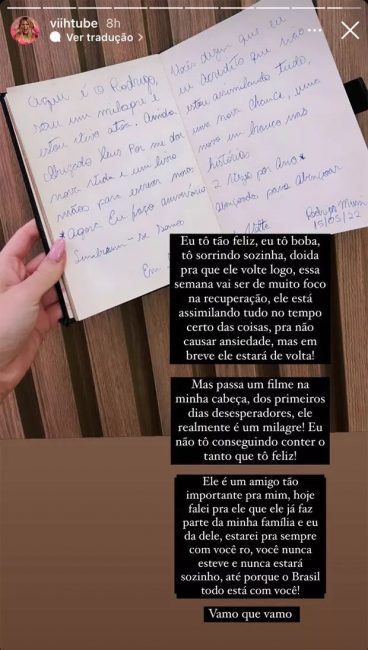 viihtube 8h
Ver tradução >
Aqui é o Rodrigo,
sou um milagre e
estou vivo atoa. Ainda
Obrigado Deus Por me dar
nova vida e um livro
mãos para escrever nova
*Agora Eu faço aniversário
Lembram-se
Em
Vocês dizem que eu
eu acredito que não
estou assimilando tudo,
uma nova chance, uma
novo em branco nas
histórias
2 vezes por Ano*
abençoando, para abençoar
Rodrigo Mussi
15/05/22
Eu tô tão feliz, eu tô boba,
tô sorrindo sozinha, doida
pra que ele volte logo, essa
semana vai ser de muito foco
na recuperação, ele está
assimilando tudo no tempo
certo das coisas, pra não
causar ansiedade, mas em
breve ele estará de volta!
Mas passa um filme na
minha cabeça, dos primeiros
dias desesperadores, ele
realmente é um milagre! Eu
não tô conseguindo conter o
tanto que tô feliz!
Ele é um amigo tão
importante pra mim, hoje
falei pra ele que ele já faz
parte da minha família e eu
da dele, estarei pra sempre
com você ro, você nunca
esteve e nunca estará
sozinho, até porque o Brasil
todo está com você!
Vamo que vamo